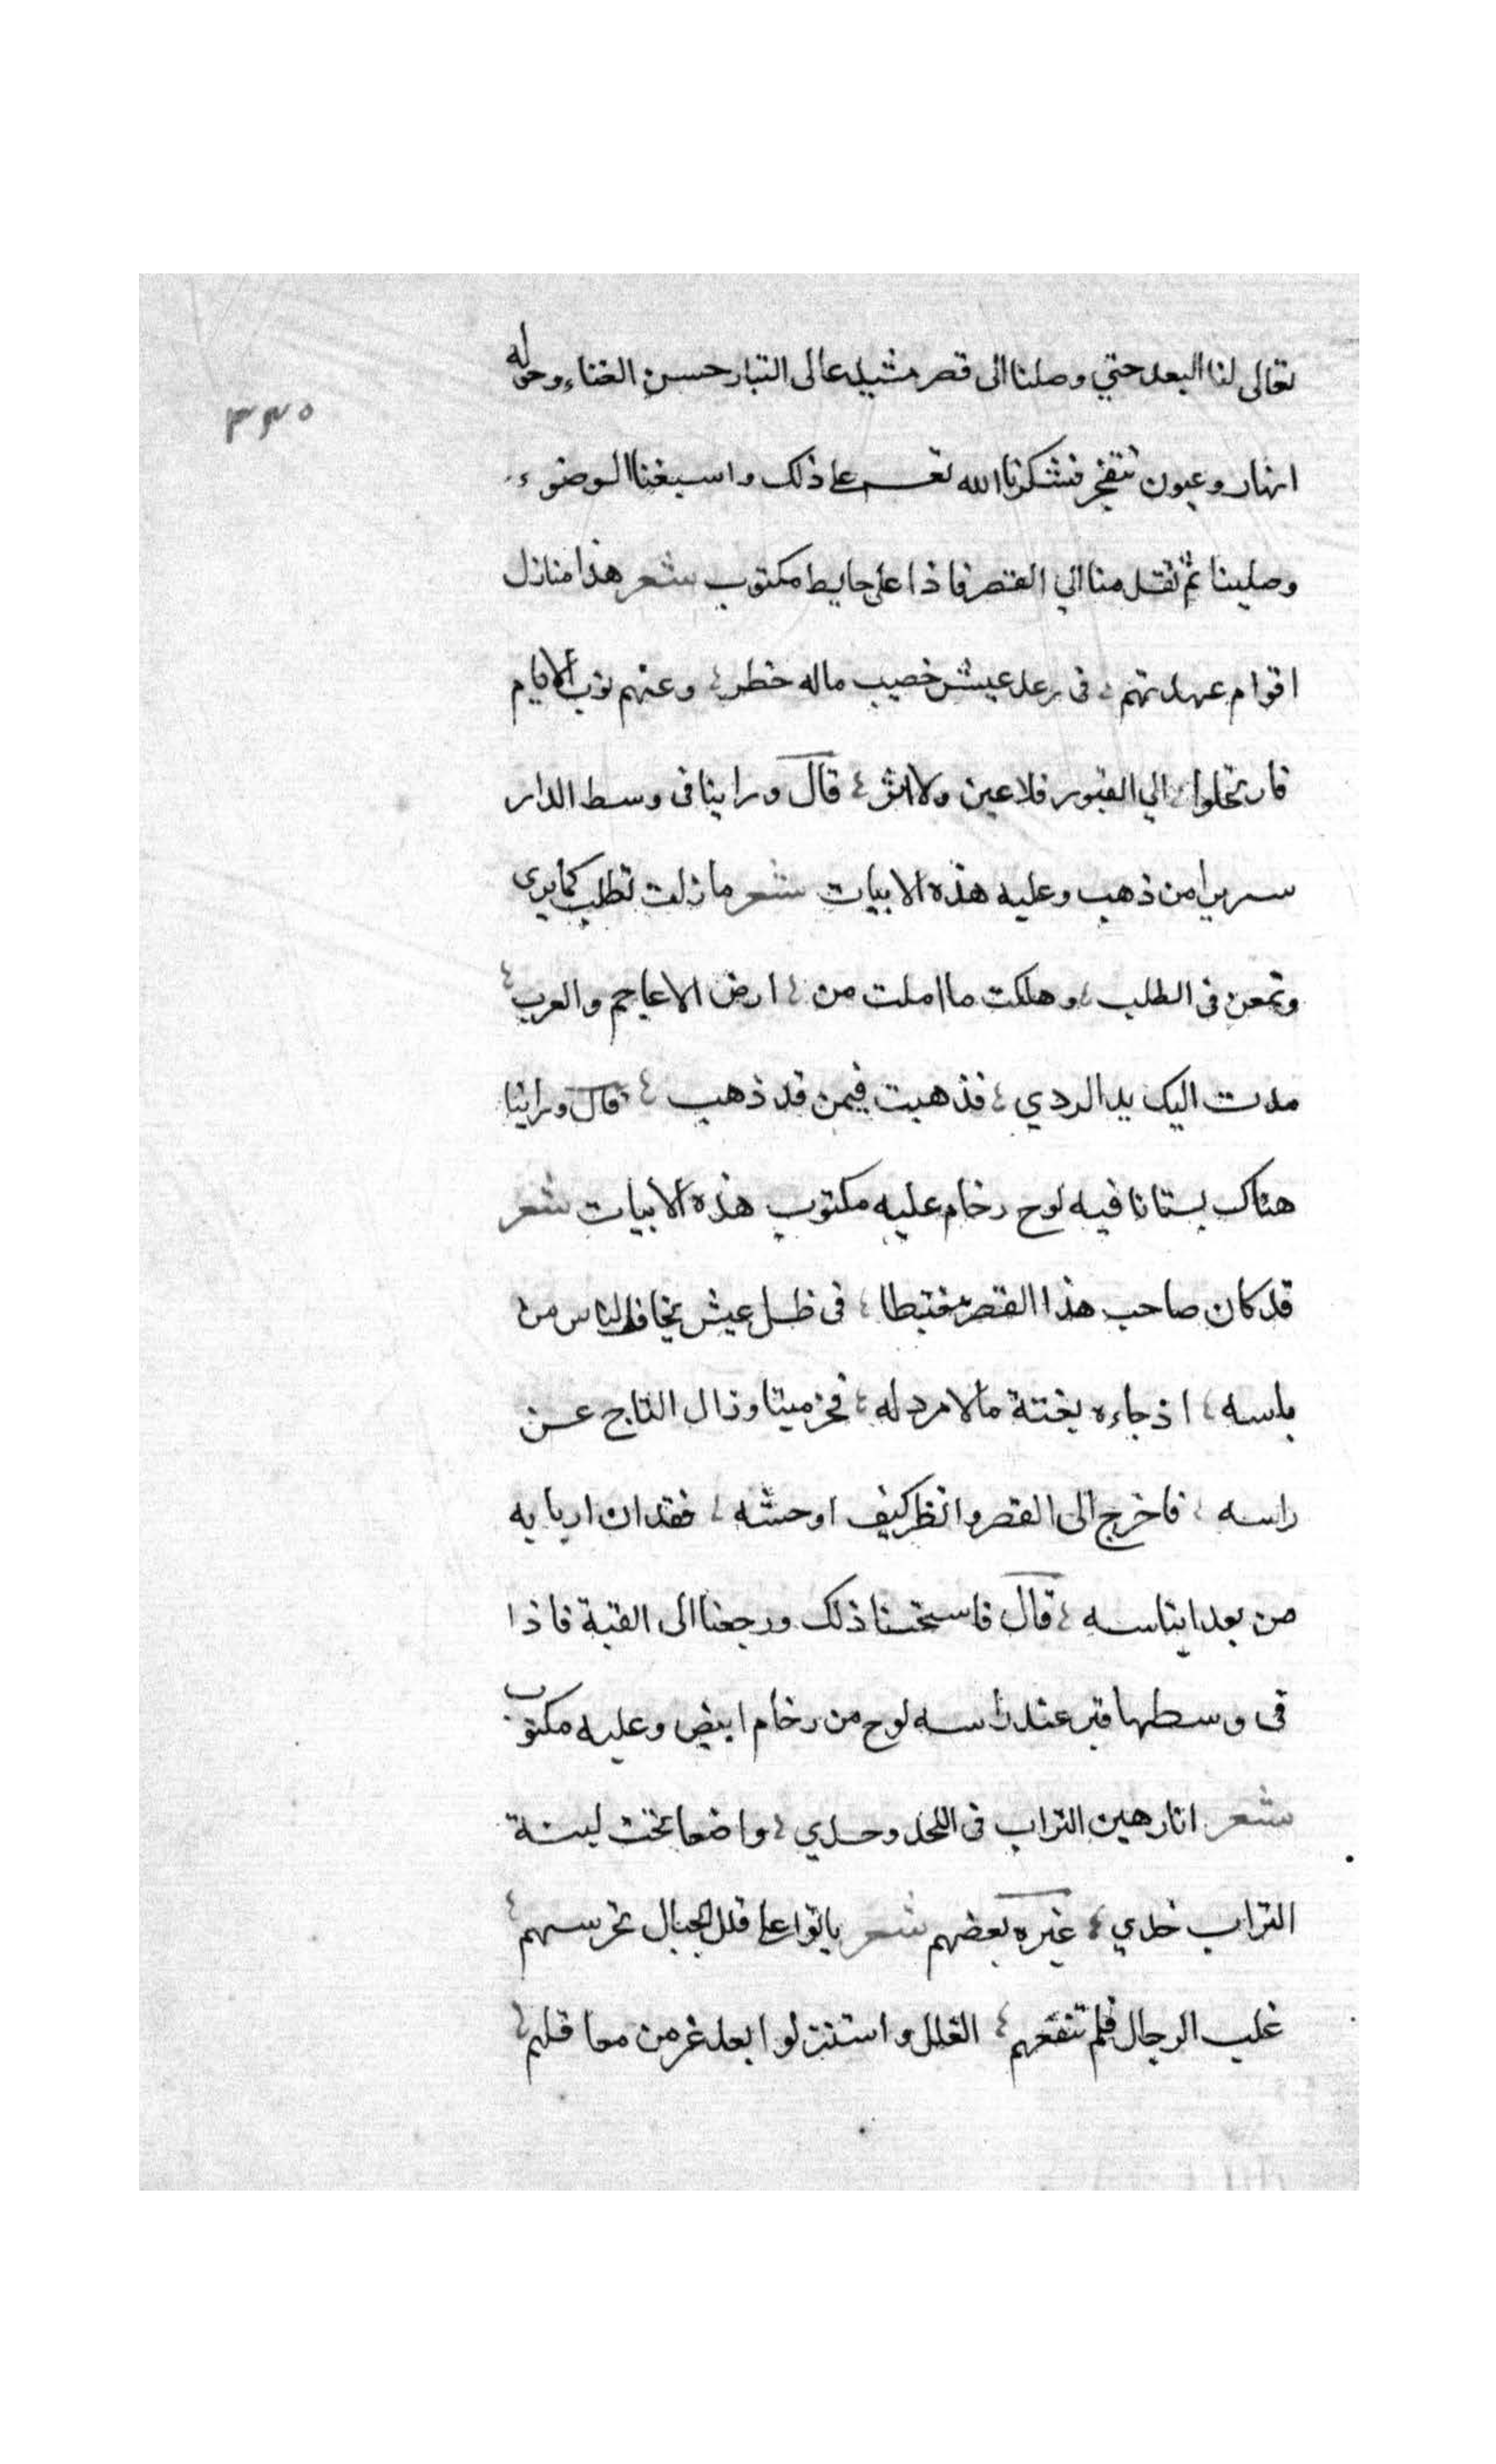 تعالى لنا البعد حتي وصلنا الى قصر مشيد عالى التبار حسن الفناء وحوله
٣٣٥
انهار وعيون تتفجر فشكرنا الله تعـــ على ذلك واسبغنا الوضوء
وصلينا ثم تقد منا الي القصر فاذا على حايط مكتوب شعر هذا منازل
اقوام عهدتهم ، فى رعد عيش خصيب ماله خطر ، وعنهم نوب الايام
فارتحلوا ، الي القبور فلا عين ولا اثر ، قال وراينا فى وسط الدار
سريرا من ذهب وعليه هذه الابيات شعر ما زلت تطلب كما يرى
وتمعن فى الطلب ، وهلكت ما املت من ، ارض الاعاجم والعرب ،
مدت اليك يد الردي ، فذهبت فيمن قد ذهب ، قال وراينا
هناك بستانا فيه لوح رخام عليه مكتوب هذه الابيات شعر
قد كان صاحب هذا القصر مغتبطا ، فى ظل عيش يخاف الناس من
باسه ، اذ جاءه بغتة ما لا مرد له ، فخر ميتا وزال التاج عن
راسه ، فاخرج الى القصر وانظر كيف اوحشه ، فقدان اربابه
من بعد ايناسه ، قال فاستحسنا ذلك ورجعنا الى القبة فاذا
فى وسطها قبر عند راسه لوح من رخام ابيض وعليه مكتوب
شعر انا رهين التراب فى اللحد وحدي ، واضعا تحت لبنة
التراب خدي ، غيره بعضهم شعر باتوا على قلل الجبال تحرسهم ،
غلب الرجال فلم تنفعهم ، القلل واستنزلوا بعد عز من معاقلهم ،